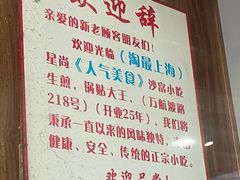 欢迎辞
亲爱的新老顾客朋友们！
欢迎光临《淘最上海》
星尚《人气美食》沙富小吃
生煎，锅贴大王，（万航渡路
218号）（开业25年），我们将
秉承一直以来的风味独特、
健康、安全、传统的正宗小吃。
欢迎